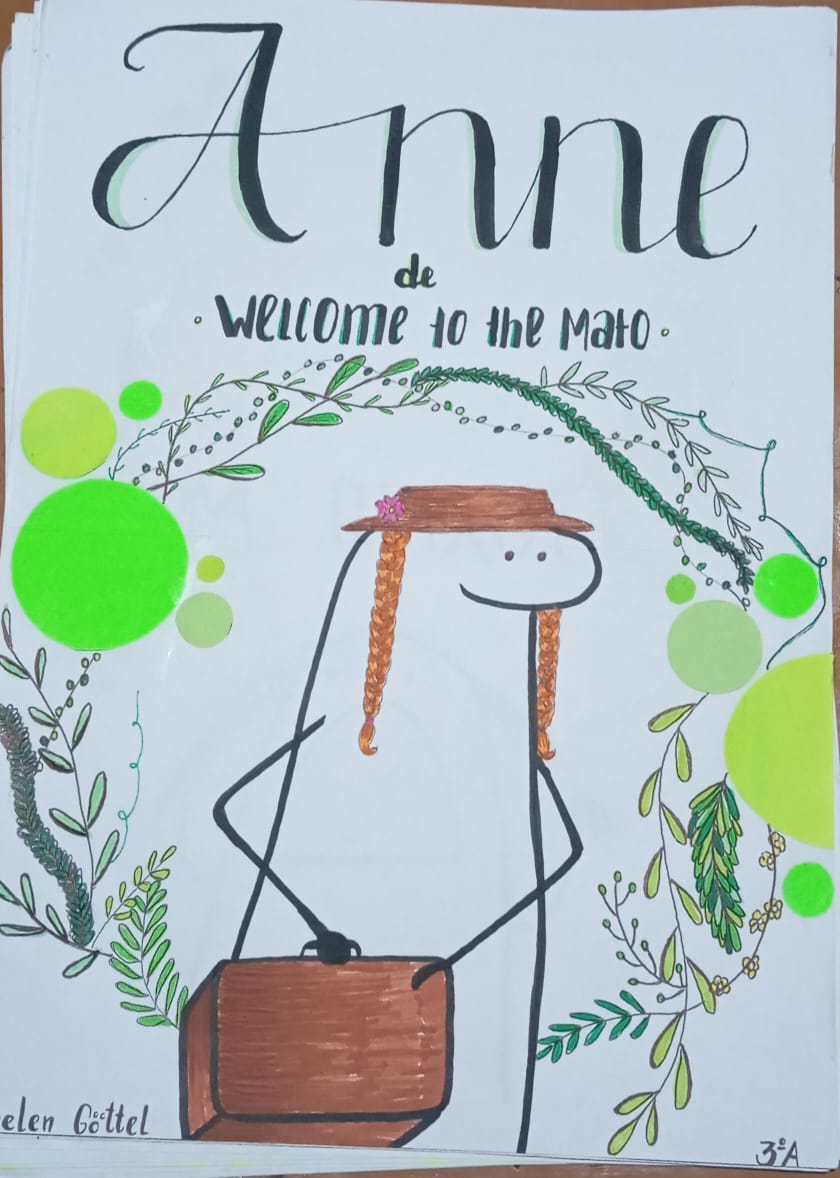 Anne
de
• Welcome to the Mato •
elen Göttel
3ºA